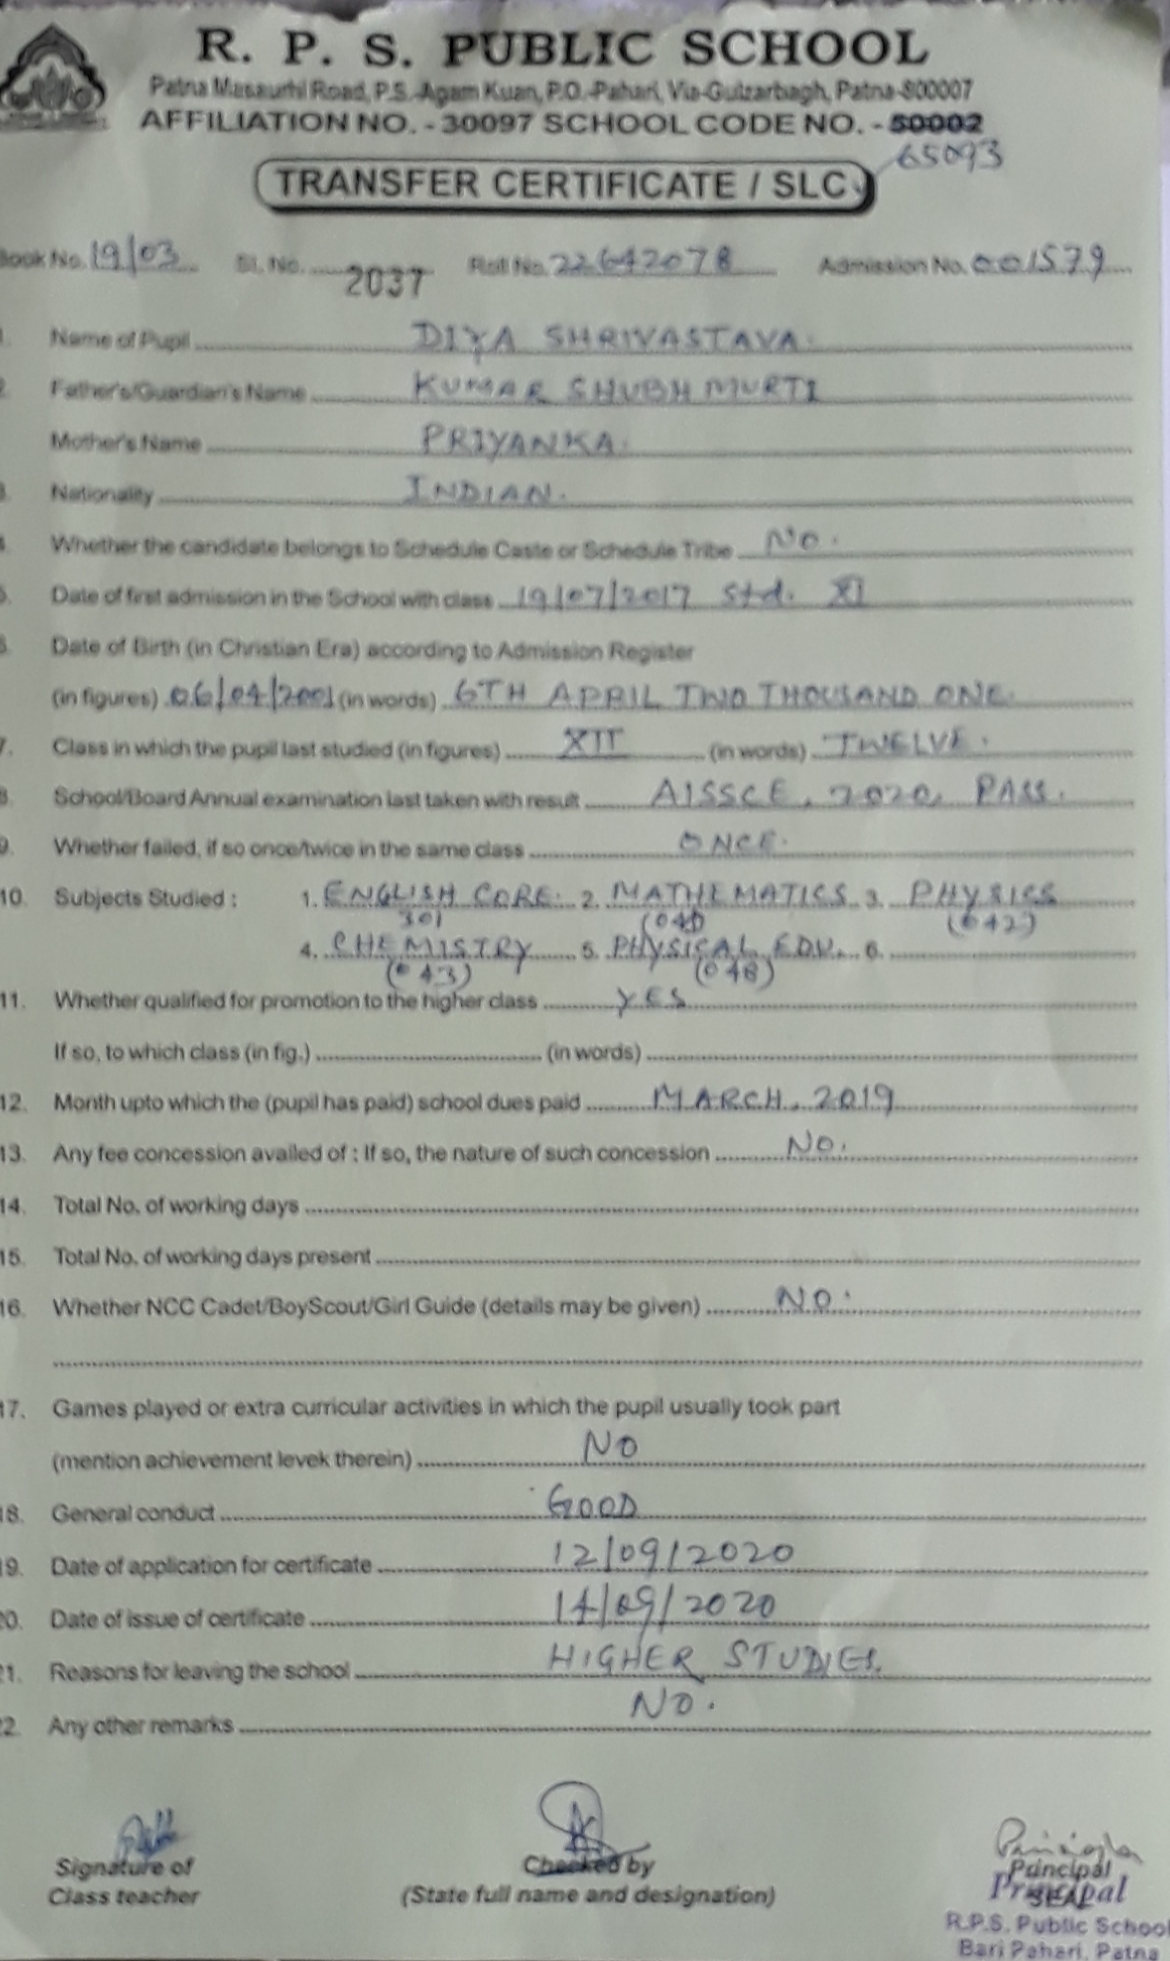 R. P. S. PUBLIC SCHOOL
Patna Masaurhi Road, P.S.-Agam Kuan, P.O.-Pahari, Via-Gulzarbagh, Patna-800007
AFFILIATION NO. - 30097 SCHOOL CODE NO. - 50002
65093
TRANSFER CERTIFICATE / SLC
Book No. 19/03 Sl. No. 2037 Roll No. 22642078 Admission No. 001579
1. Name of Pupil DIYA SHRIVASTAVA.
2. Father's/Guardian's Name KUMAR SHUBH MURTI
Mother's Name PRIYANKA.
3. Nationality INDIAN.
4. Whether the candidate belongs to Schedule Caste or Schedule Tribe No.
5. Date of first admission in the School with class 19/07/2017 Std. XI
6. Date of Birth (in Christian Era) according to Admission Register
(in figures) 06/04/2001 (in words) 6TH APRIL TWO THOUSAND ONE.
7. Class in which the pupil last studied (in figures) XII (in words) TWELVE.
8. School/Board Annual examination last taken with result AISSCE, 2020, PASS.
9. Whether failed, if so once/twice in the same class ONCE.
10. Subjects Studied : 1. ENGLISH CORE. 2. MATHEMATICS 3. PHYSICS
301 (041) (042)
4. CHEMISTRY 5. PHYSICAL EDU. 6.
(043) (048)
11. Whether qualified for promotion to the higher class YES
If so, to which class (in fig.) (in words)
12. Month upto which the (pupil has paid) school dues paid MARCH, 2019
13. Any fee concession availed of : If so, the nature of such concession No.
14. Total No. of working days
15. Total No. of working days present
16. Whether NCC Cadet/BoyScout/Girl Guide (details may be given) NO.
17. Games played or extra curricular activities in which the pupil usually took part
(mention achievement levek therein) NO
18. General conduct GOOD
19. Date of application for certificate 12/09/2020
20. Date of issue of certificate 14/09/2020
21. Reasons for leaving the school HIGHER STUDIES.
22. Any other remarks NO.
Signature of Checked by Principal
Class teacher (State full name and designation) SEAL
Principal
R.P.S. Public School
Bari Pahari, Patna